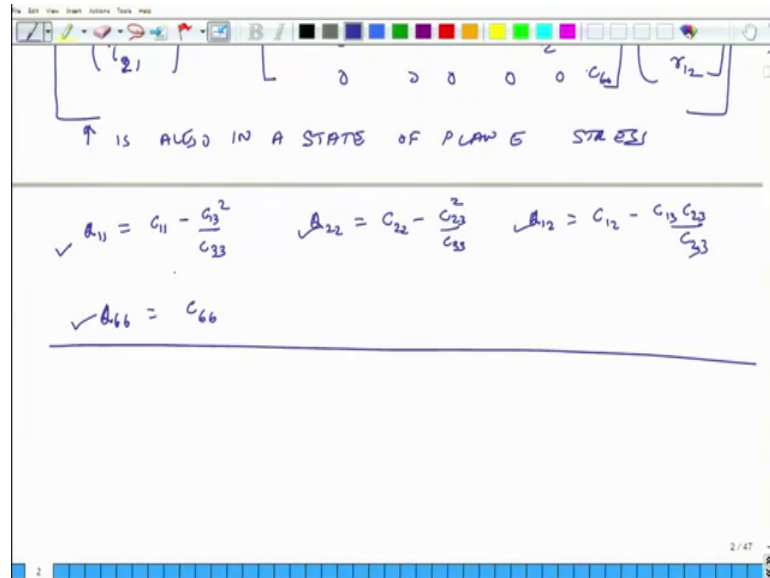 File Edit View Insert Actions Tools Help
B I
τ21
0 0 0 0 0 C66 γ12
↑ IS ALSO IN A STATE OF PLANE STRESS
✓ Q11 = C11 - C13²/C33 ✓ Q22 = C22 - C23²/C33 ✓ Q12 = C12 - C13 C23/C33
✓ Q66 = C66
2 / 47
2